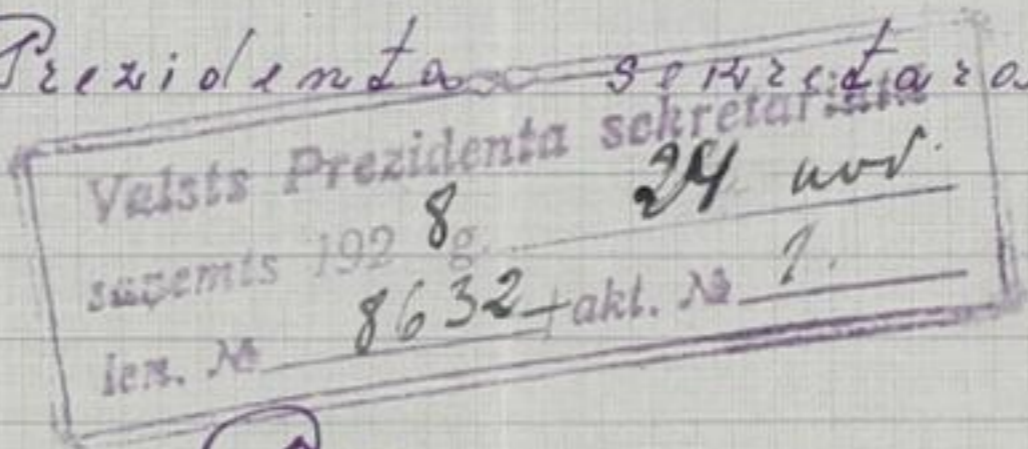 Prezidenta sekretara
Valsts Prezidenta sekretariātā
saņemts 1928 g. 24 nov.
ien. № 8632 akt. № 1.